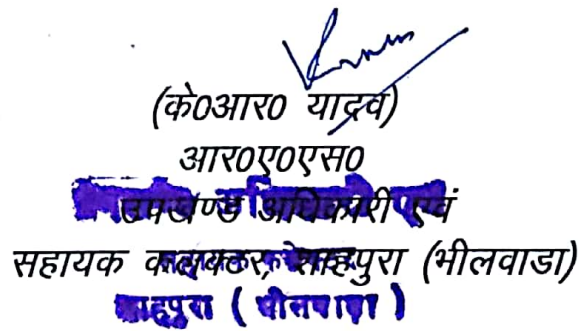 (के0आर0 यादव)
आर0ए0एस0
उपखण्ड अधिकारी एवं
सहायक कलक्टर, शाहपुरा (भीलवाडा)
शाहपुरा ( भीलवाड़ा )